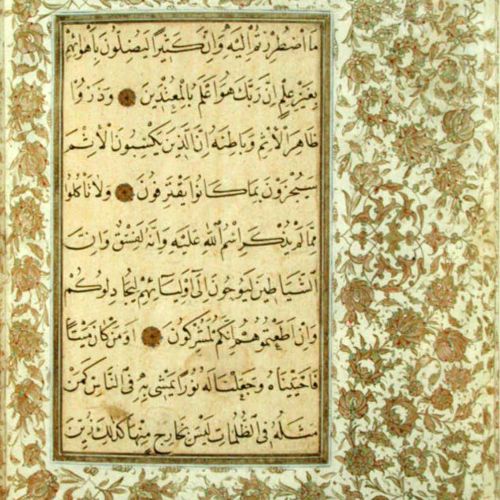 ما اضطررتم اليه وان كثيرا ليضلون باهوائهم
بغير علم ان ربك هو اعلم بالمعتدين وذروا
ظاهر الاثم وباطنه ان الذين يكسبون الاثم
سيجزون بما كانوا يقترفون ولا تاكلوا
مما لم يذكر اسم الله عليه وانه لفسق وان
الشياطين ليوحون الى اوليائهم ليجادلوكم
وان اطعتموهم انكم لمشركون اومن كان ميتا
فاحييناه وجعلنا له نورا يمشي به في الناس كمن
مثله في الظلمات ليس بخارج منها كذلك زين